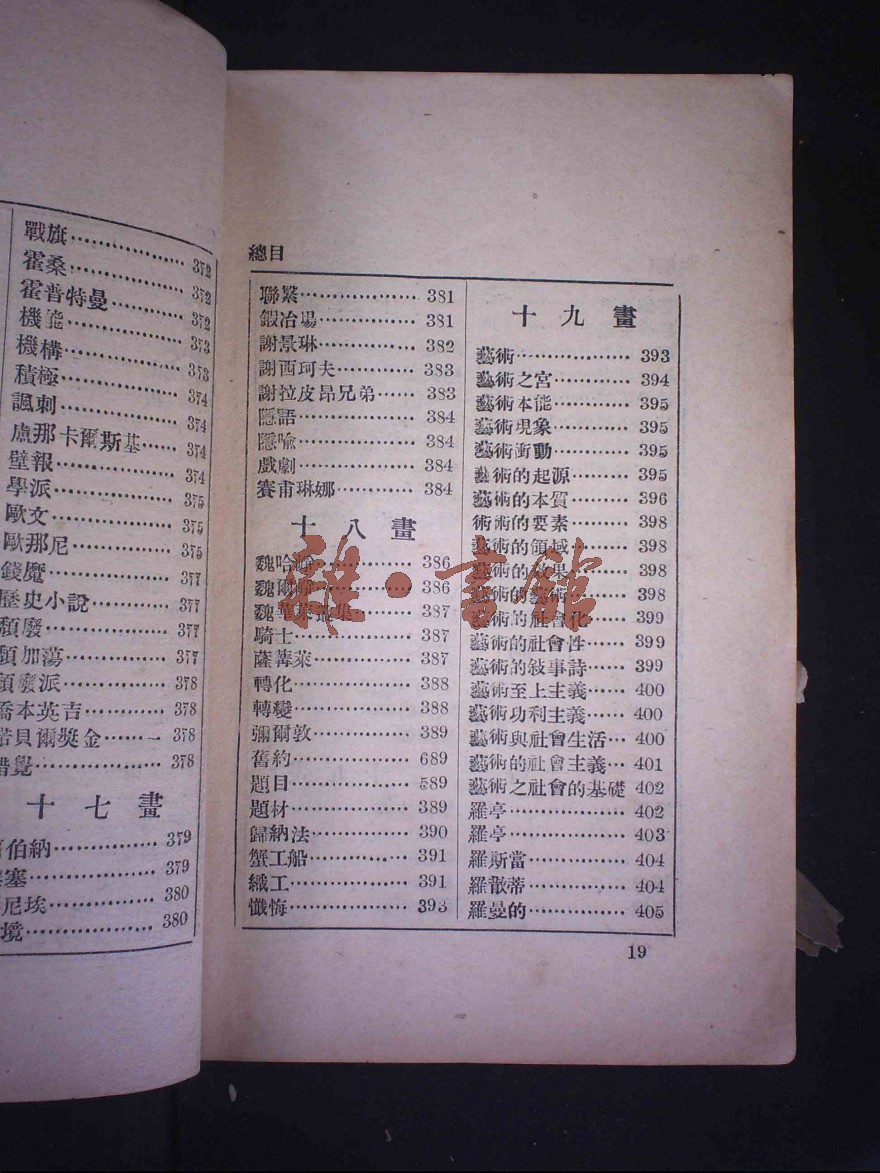 戰旗 372
霍桑 372
霍普特曼 372
機能 373
機構 373
積極 374
諷刺 374
盧那卡爾斯基 374
壁報 374
學派 375
歐文 375
歐那尼 375
錢魔 377
歷史小說 377
頹廢 377
頹加蕩 377
頹廢派 378
喬本英吉 378
諾貝爾獎金 378
錯覺 378
十七畫
伯納 379
塞 379
尼埃 380
境 380
總目
聯繫 381
鍛冶場 381
謝景琳 382
謝西珂夫 383
謝拉皮昂兄弟 383
隱語 384
隱喩 384
戲劇 384
賽甫琳娜 384
十八畫
魏哈 386
魏爾 386
魏 集 387
騎士 387
薩葺萊 387
轉化 388
轉變 388
彌爾敦 389
舊約 689
題目 589
題材 389
歸納法 390
蟹工船 391
織工 391
懺悔 393
十九畫
藝術 393
藝術之宮 394
藝術本能 395
藝術現象 395
藝術衝動 395
藝術的起源 395
藝術的本質 396
術術的要素 398
藝術的領域 398
藝術的效果 398
藝術的藝術 398
藝術的社會化 399
藝術的社會性 399
藝術的敍事詩 399
藝術至上主義 400
藝術功利主義 400
藝術與社會生活 400
藝術的社會主義 401
藝術之社會的基礎 402
羅亭 402
羅亭 403
羅斯當 404
羅散蒂 404
羅曼的 405
19
雜·書館